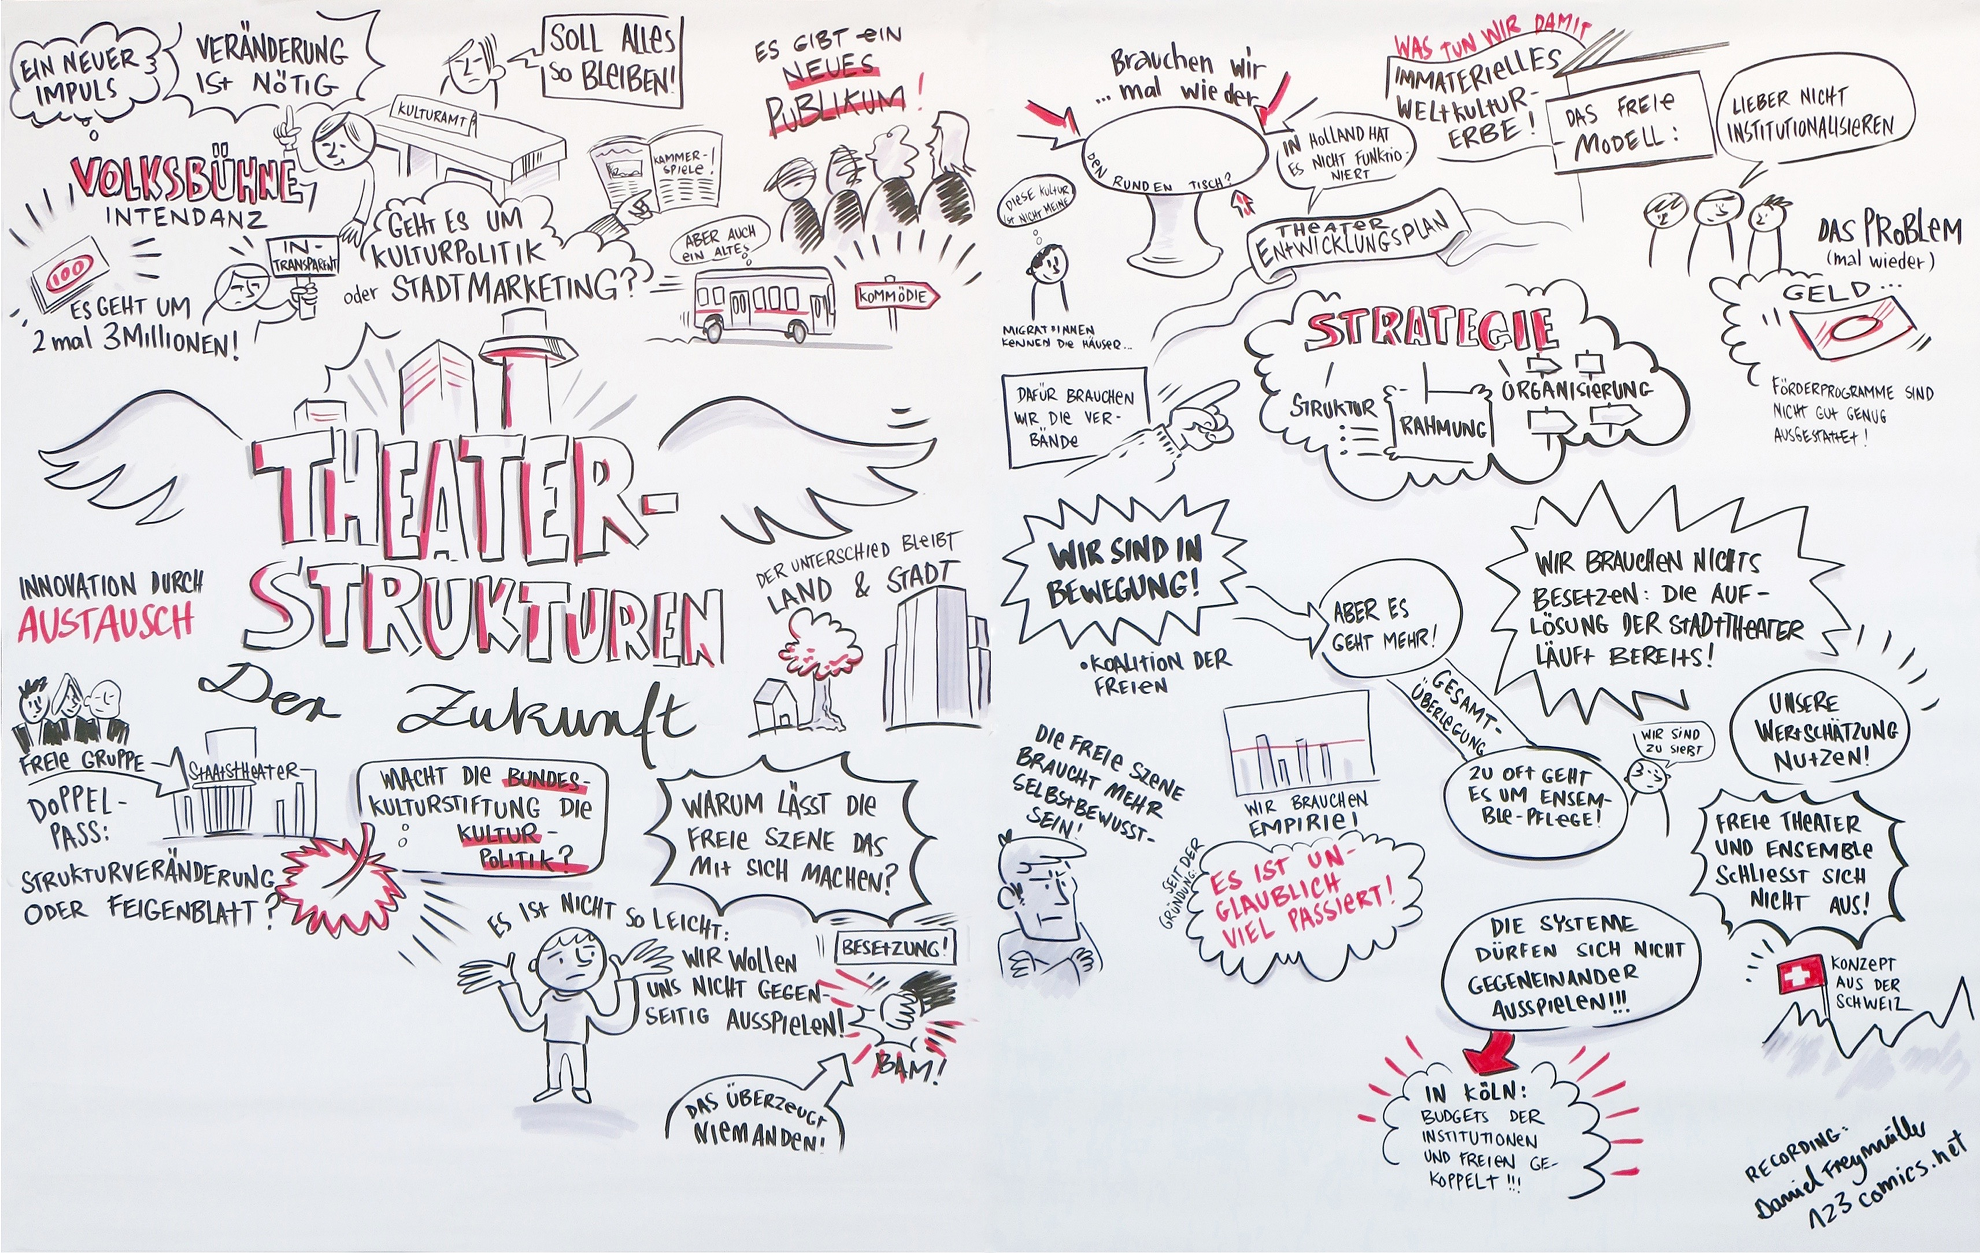 EIN NEUER
IMPULS
VERÄNDERUNG
IST NÖTIG
SOLL ALLES
SO BLEIBEN!
KULTURAMT
VOLKSBÜHNE
INTENDANZ
100
ES GEHT UM
2 mal 3 MILLIONEN!
IN-
TRANSPARENT
GEHT ES UM
KULTURPOLITIK
oder STADTMARKETING?
KAMMER-
SPIELE!
ES GIBT EIN
NEUES
PUBLIKUM!
ABER AUCH
EIN ALTES
KOMMÖDIE
THEATER-
STRUKTUREN
Der Zukunft
INNOVATION DURCH
AUSTAUSCH
DER UNTERSCHIED BLEIBT
LAND & STADT
FREIE GRUPPE
STAATSTHEATER
DOPPEL-
PASS:
STRUKTURVERÄNDERUNG
ODER FEIGENBLATT?
MACHT DIE BUNDES-
KULTURSTIFTUNG DIE
KULTUR-
POLITIK?
WARUM LÄSST DIE
FREIE SZENE DAS
MIT SICH MACHEN?
ES IST NICHT SO LEICHT:
WIR WOLLEN
UNS NICHT GEGEN-
SEITIG AUSSPIELEN!
BESETZUNG!
BAM!
DAS ÜBERZEUGT
NIEMANDEN!
Brauchen wir
... mal wieder
DEN RUNDEN TISCH?
IN HOLLAND HAT
ES NICHT FUNKTIO-
NIERT
WAS TUN WIR DAMIT
IMMATERIELLES
WELTKULTUR-
ERBE!
DAS FREIE
MODELL:
LIEBER NICHT
INSTITUTIONALISIEREN
DIESE KULTUR
IST NICHT MEINE
MIGRAT*INNEN
KENNEN DIE HÄUSER...
THEATER
ENTWICKLUNGSPLAN
DAS PROBLEM
(mal wieder)
GELD...
FÖRDERPROGRAMME SIND
NICHT GUT GENUG
AUSGESTATTET!
STRATEGIE
STRUKTUR
RAHMUNG
ORGANISIERUNG
DAFÜR BRAUCHEN
WIR DIE VER-
BÄNDE
WIR SIND IN
BEWEGUNG!
• KOALITION DER
FREIEN
ABER ES
GEHT MEHR!
GESAMT-
ÜBERLEGUNG
WIR BRAUCHEN NICHTS
BESETZEN: DIE AUF-
LÖSUNG DER STADTTHEATER
LÄUFT BEREITS!
ZU OFT GEHT
ES UM ENSEM-
BLE-PFLEGE!
WIR SIND
ZU SIEBT
UNSERE
WERTSCHÄTZUNG
NUTZEN!
DIE FREIE SZENE
BRAUCHT MEHR
SELBSTBEWUSST-
SEIN!
WIR BRAUCHEN
EMPIRIE!
SEIT DER
GRÜNDUNG:
ES IST UN-
GLAUBLICH
VIEL PASSIERT!
FREIE THEATER
UND ENSEMBLE
SCHLIESST SICH
NICHT AUS!
DIE SYSTEME
DÜRFEN SICH NICHT
GEGENEINANDER
AUSSPIELEN!!!
KONZEPT
AUS DER
SCHWEIZ
IN KÖLN:
BUDGETS DER
INSTITUTIONEN
UND FREIEN GE-
KOPPELT!!!
RECORDING:
Daniel Freymüller
123comics.net